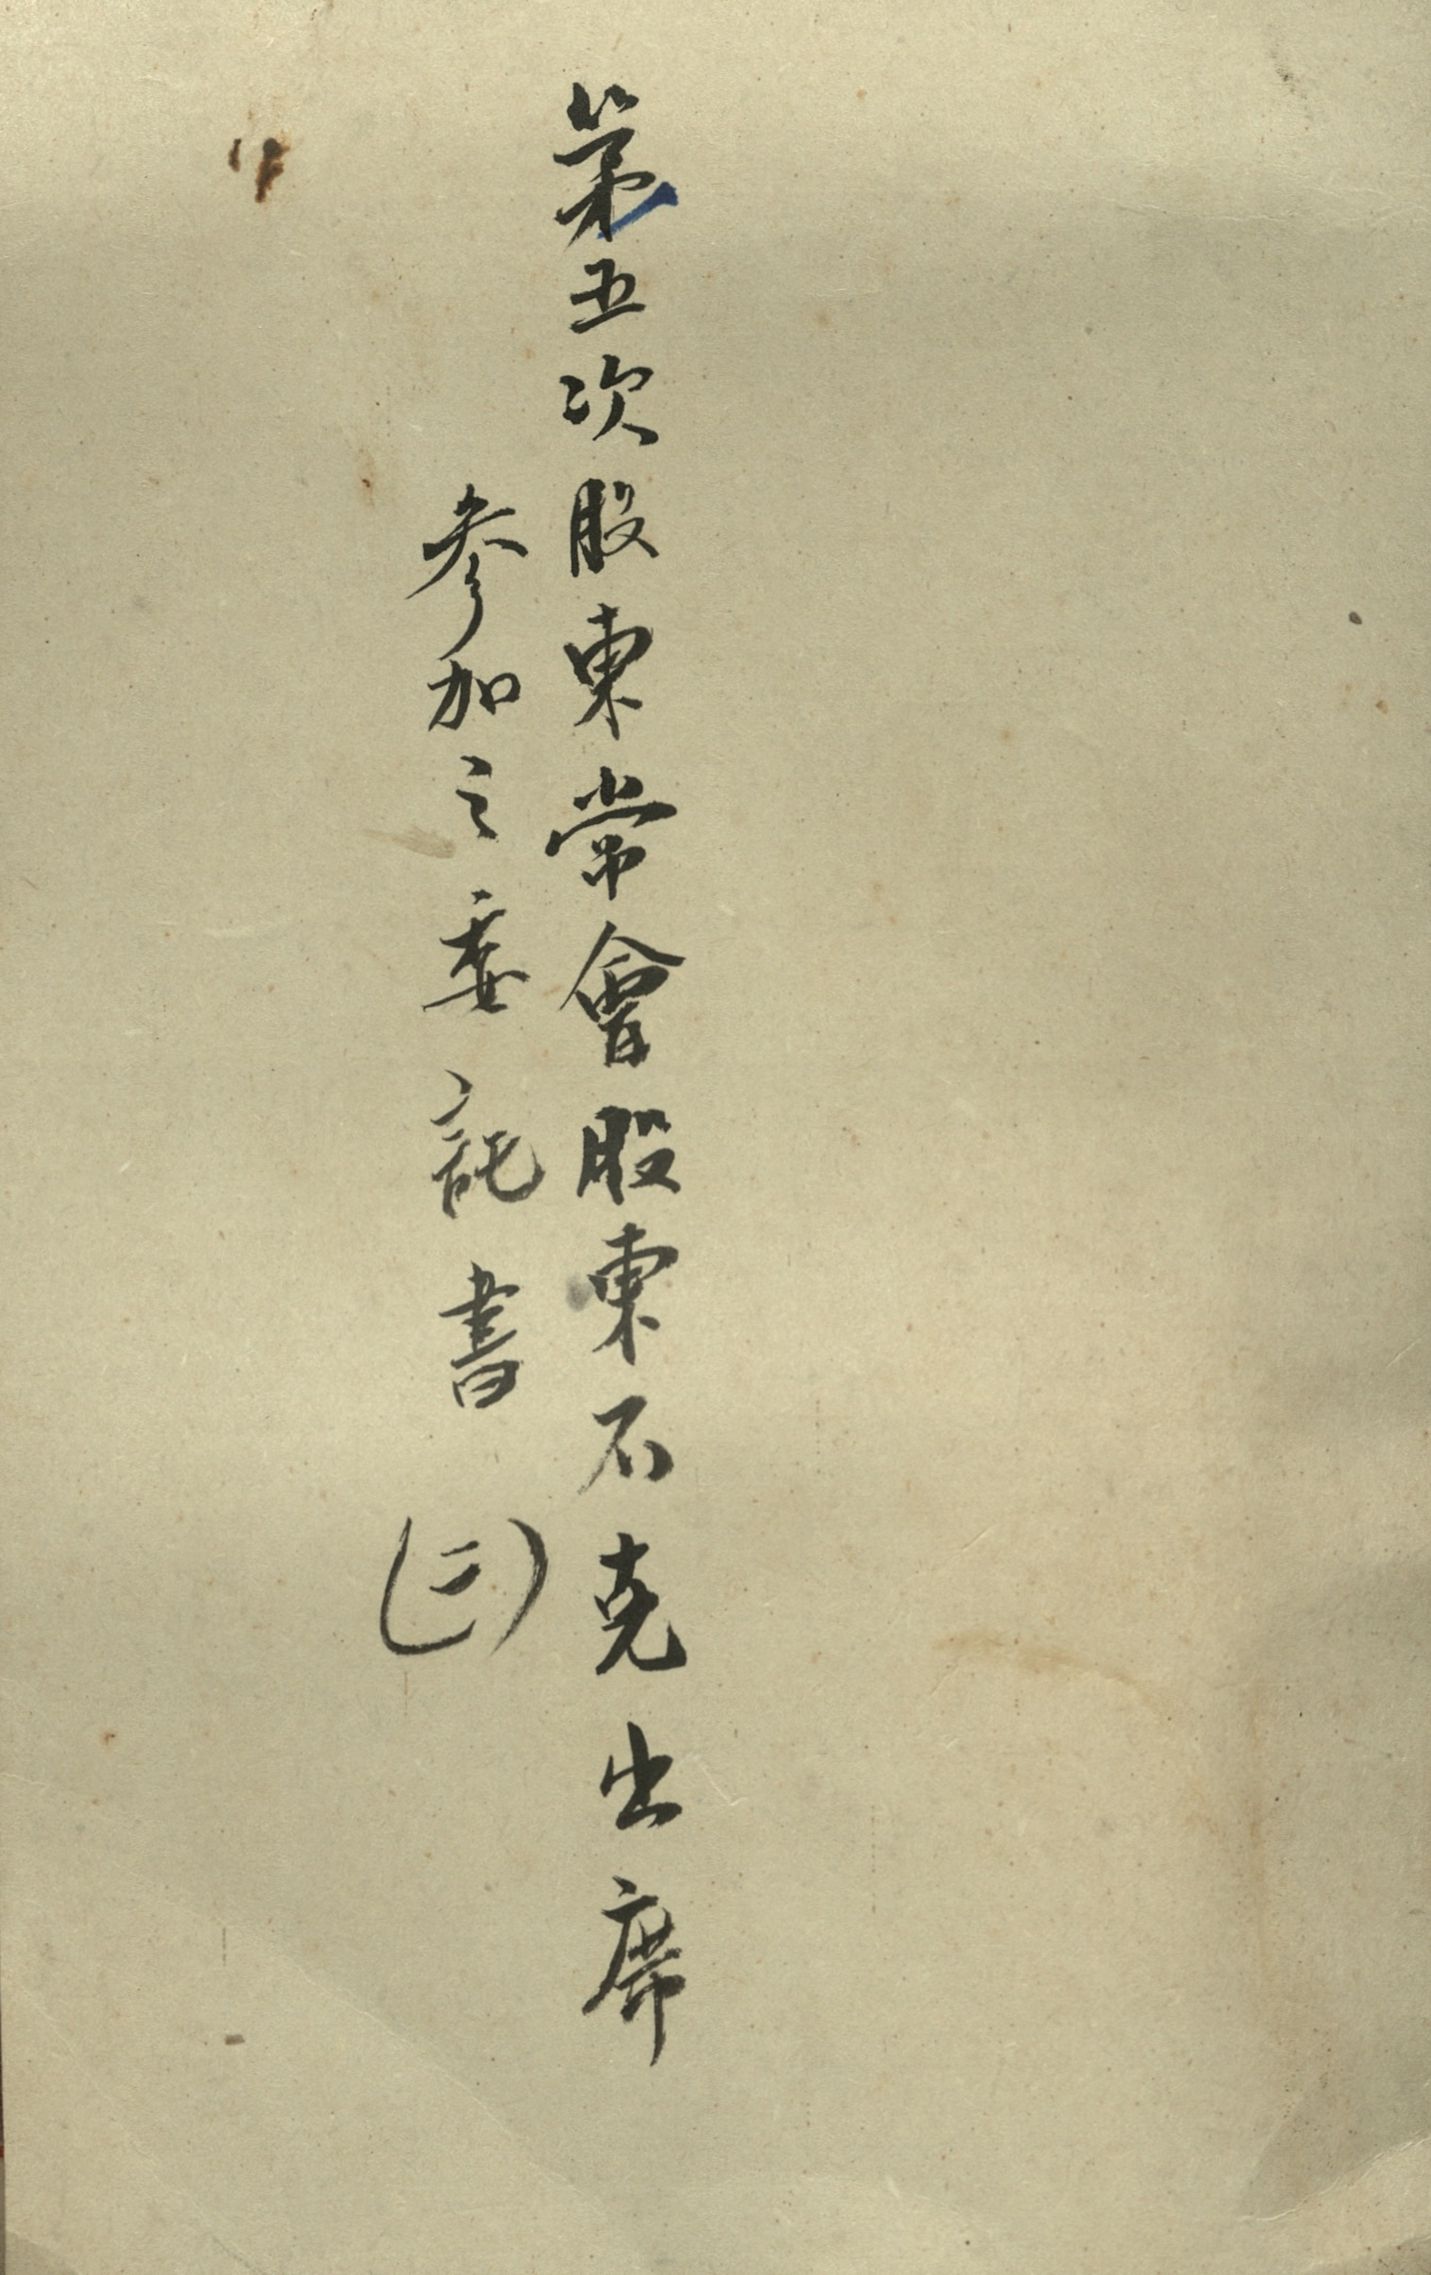 第五次股東常會股東不克出席
参加之委託書(三)